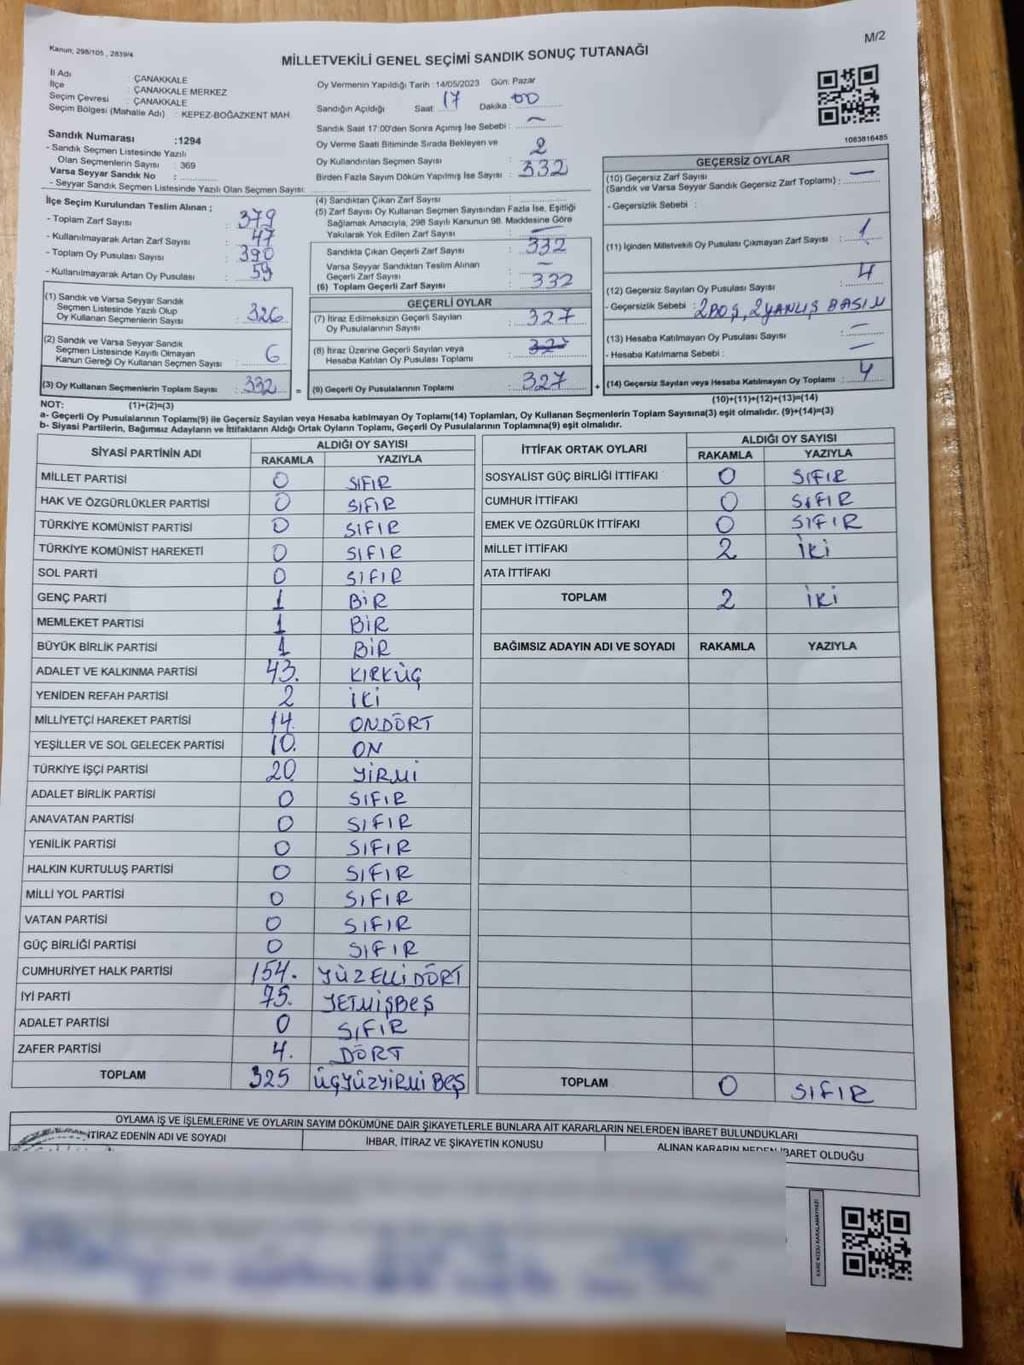 Kanun; 298/105 , 2839/4
M/2
MİLLETVEKİLİ GENEL SEÇİMİ SANDIK SONUÇ TUTANAĞI
İl Adı : ÇANAKKALE
İlçe : ÇANAKKALE MERKEZ
Seçim Çevresi : ÇANAKKALE
Seçim Bölgesi (Mahalle Adı) : KEPEZ-BOĞAZKENT MAH.
Sandık Numarası :1294
- Sandık Seçmen Listesinde Yazılı
Olan Seçmenlerin Sayısı : 369
Varsa Seyyar Sandık No :
- Seyyar Sandık Seçmen Listesinde Yazılı Olan Seçmen Sayısı:
Oy Vermenin Yapıldığı Tarih :14/05/2023 Gün: Pazar
Sandığın Açıldığı Saat : 17 Dakika : 00
Sandık Saat 17:00'den Sonra Açımış İse Sebebi : ~
Oy Verme Saati Bitiminde Sırada Bekleyen ve
Oy Kullandırılan Seçmen Sayısı : 2
Birden Fazla Sayım Döküm Yapılmış İse Sayısı : 332
1083816485
İlçe Seçim Kurulundan Teslim Alınan ;
- Toplam Zarf Sayısı : 379
- Kullanılmayarak Artan Zarf Sayısı : 47
- Toplam Oy Pusulası Sayısı : 390
- Kullanılmayarak Artan Oy Pusulası : 59
(1) Sandık ve Varsa Seyyar Sandık
Seçmen Listesinde Yazılı Olup
Oy Kullanan Seçmenlerin Sayısı : 326
(2) Sandık ve Varsa Seyyar Sandık
Seçmen Listesinde Kayıtlı Olmayan
Kanun Gereği Oy Kullanan Seçmen Sayısı : 6
(3) Oy Kullanan Seçmenlerin Toplam Sayısı : 332 =
(4) Sandıktan Çıkan Zarf Sayısı :
(5) Zarf Sayısı Oy Kullanan Seçmen Sayısından Fazla İse, Eşitliği
Sağlamak Amacıyla, 298 Sayılı Kanunun 98. Maddesine Göre
Yakılarak Yok Edilen Zarf Sayısı : —
Sandıkta Çıkan Geçerli Zarf Sayısı : 332
Varsa Seyyar Sandıktan Teslim Alınan
Geçerli Zarf Sayısı : ~
(6) Toplam Geçerli Zarf Sayısı : 332
GEÇERLİ OYLAR
(7) İtiraz Edilmeksizin Geçerli Sayılan
Oy Pusulasının Sayısı : 327
(8) İtiraz Üzerine Geçerli Sayılan veya
Hesaba Katılan Oy Pusulası Toplamı : 327
(9) Geçerli Oy Pusulalarının Toplamı : 327 +
GEÇERSİZ OYLAR
(10) Geçersiz Zarf Sayısı
(Sandık ve Varsa Seyyar Sandık Geçersiz Zarf Toplamı) : —
- Geçersizlik Sebebi :
(11) İçinden Milletvekili Oy Pusulası Çıkmayan Zarf Sayısı : 1
(12) Geçersiz Sayılan Oy Pusulası Sayısı : 4
- Geçersizlik Sebebi : 2 BOŞ, 2 YANLIŞ BASIM
(13) Hesaba Katılmayan Oy Pusulası Sayısı : —
- Hesaba Katılmama Sebebi : —
(14) Geçersiz Sayılan veya Hesaba Katılmayan Oy Toplamı : 4
(10)+(11)+(12)+(13)=(14)
NOT: (1)+(2)=(3)
a- Geçerli Oy Pusulalarının Toplamı(9) ile Geçersiz Sayılan veya Hesaba katılmayan Oy Toplamı(14) Toplamları, Oy Kullanan Seçmenlerin Toplam Sayısına(3) eşit olmalıdır. (9)+(14)=(3)
b- Siyasi Partilerin, Bağımsız Adayların ve İttifakların Aldığı Ortak Oyların Toplamı, Geçerli Oy Pusulalarının Toplamına(9) eşit olmalıdır.
SİYASİ PARTİNİN ADI ALDIĞI OY SAYISI
RAKAMLA YAZIYLA
MİLLET PARTİSİ 0 SIFIR
HAK VE ÖZGÜRLÜKLER PARTİSİ 0 SIFIR
TÜRKİYE KOMÜNİST PARTİSİ 0 SIFIR
TÜRKİYE KOMÜNİST HAREKETİ 0 SIFIR
SOL PARTİ 0 SIFIR
GENÇ PARTİ 1 BİR
MEMLEKET PARTİSİ 1 BİR
BÜYÜK BİRLİK PARTİSİ 1 BİR
ADALET VE KALKINMA PARTİSİ 43. KIRKÜÇ
YENİDEN REFAH PARTİSİ 2 İKİ
MİLLİYETÇİ HAREKET PARTİSİ 14. ONDÖRT
YEŞİLLER VE SOL GELECEK PARTİSİ 10. ON
TÜRKİYE İŞÇİ PARTİSİ 20. YİRMİ
ADALET BİRLİK PARTİSİ 0 SIFIR
ANAVATAN PARTİSİ 0 SIFIR
YENİLİK PARTİSİ 0 SIFIR
HALKIN KURTULUŞ PARTİSİ 0 SIFIR
MİLLİ YOL PARTİSİ 0 SIFIR
VATAN PARTİSİ 0 SIFIR
GÜÇ BİRLİĞİ PARTİSİ 0 SIFIR
CUMHURİYET HALK PARTİSİ 154. YÜZELLİDÖRT
İYİ PARTİ 75. YETMİŞBEŞ
ADALET PARTİSİ 0 SIFIR
ZAFER PARTİSİ 4. DÖRT
TOPLAM 325 ÜÇYÜZYİRMİ BEŞ
İTTİFAK ORTAK OYLARI ALDIĞI OY SAYISI
RAKAMLA YAZIYLA
SOSYALİST GÜÇ BİRLİĞİ İTTİFAKI 0 SIFIR
CUMHUR İTTİFAKI 0 SIFIR
EMEK VE ÖZGÜRLÜK İTTİFAKI 0 SIFIR
MİLLET İTTİFAKI 2 İKİ
ATA İTTİFAKI
TOPLAM 2 İKİ
BAĞIMSIZ ADAYIN ADI VE SOYADI RAKAMLA YAZIYLA
TOPLAM 0 SIFIR
OYLAMA İŞ VE İŞLEMLERİNE VE OYLARIN SAYIM DÖKÜMÜNE DAİR ŞİKAYETLERLE BUNLARA AİT KARARLARIN NELERDEN İBARET BULUNDUKLARI
İTİRAZ EDENİN ADI VE SOYADI İHBAR, İTİRAZ VE ŞİKAYETİN KONUSU ALINAN KARARIN NEDEN İBARET OLDUĞU